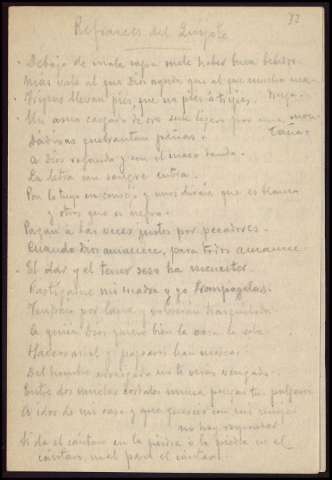 72
Refranes del Quijote
- Debajo de mala capa suele haber buen bebedor.
Más vale al que Dios ayuda que al que mucho ma-
druga.
- Tripas llevan pies, que no pies á tripas.
Un asno cargado de oro sube ligero por una mon-
taña.
Dádivas quebrantan peñas.
A Dios rogando y con el mazo dando.
La letra con sangre entra.
Pon lo tuyo en concejo y unos dirán que es blanco
y otros que es negro.
Pagan a las veces justos por pecadores.
Cuando Dios amanece, para todos amanece.
- El dar y el tener seso ha menester.
Castígame mi madre y yo trompógelas.
por lana y volverán trasquilados.
A quien Dios quiere bien la casa le sabe.
Haceos miel y paparos han moscas.
Del hombre arraigado no te verás vengado.
Entre dos muelas cordales nunca pongas tus pulgares.
A idos de mi casa y que queréis con mi mujer
no hay responder
Si da el cántaro en la piedra o la piedra en el
cántaro, mal para el cántaro.